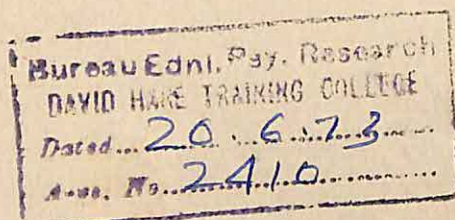 Bureau Ednl. Psy. Research
DAVID HARE TRAINING COLLEGE
Dated... 20.6.73
Accs. No. 2410